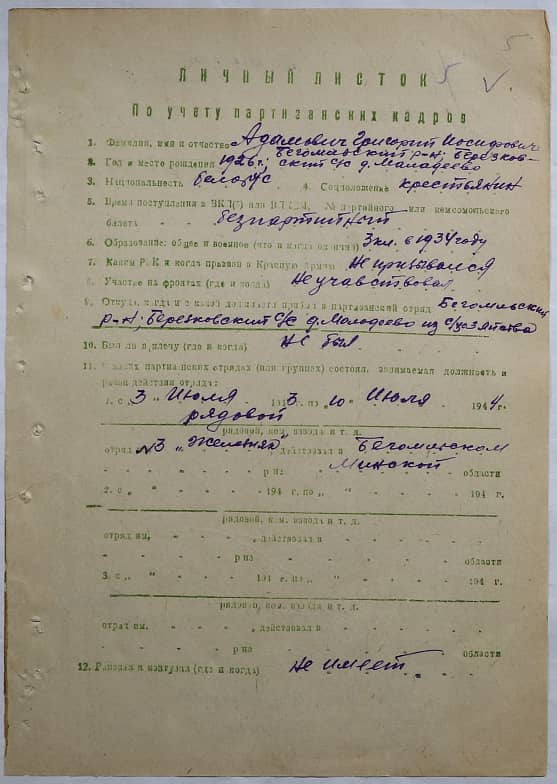 5
5 V
ЛИЧНЫЙ ЛИСТОК
По учету партизанских кадров
1. Фамилия, имя и отчество Адамович Григорий Иосифович
2. Год и место рождения 1926 г, Бегомльский р-н; Березков-
ский с/с д. Маладеево
3. Национальность белорус 4. Соцположение крестьянин
5. Время поступления в ВКП(б) или ВЛКСМ, № партийного или комсомольского
билета безпартийный
6. Образование: общее и военное (что и когда окончил) 3 кл. в 1934 году
7. Каким Р. К и когда призван в Красную Армию Не призывался
8. Участие на фронтах (где и когда) Не учавствовал
9. Откуда, когда и с какой должности прибыл в партизанский отряд Бегомльский
р-н; Березковский с/с д. Молодеево из с/хозяйства
10. Был ли в плену (где и когда) Не был
11. В каких партизанских отрядах (или группах) состоял, занимаемая должность и
район действия отряда:
1. с „3 " Июля 1943 г. по „10 " Июля 1944 г.
рядовой
рядовой, ком. взвода и т. д.
отряд №3 „Железняк" действовал в Бегомльском
р-не Минской области
2. с „ " 194 г. по „ " 194 г.
рядовой, ком. взвода и т. д.
отряд им. , действовал в
р-не области
3. с „ " 194 г. по „ " 194 г.
рядовой, ком. взвода и т. д.
отряд им. , действовал в
р-не области
12. Ранения и контузии (где и когда) Не имеет